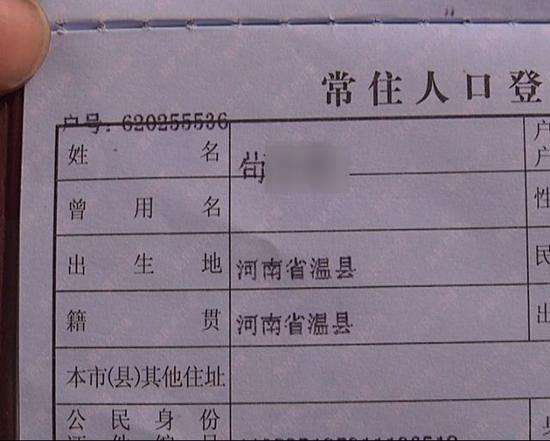 常住人口登
户号: 620255536
姓名
户
户
曾用名
性
出生地 河南省温县
民
籍贯 河南省温县
出
本市(县)其他住址
公民身份